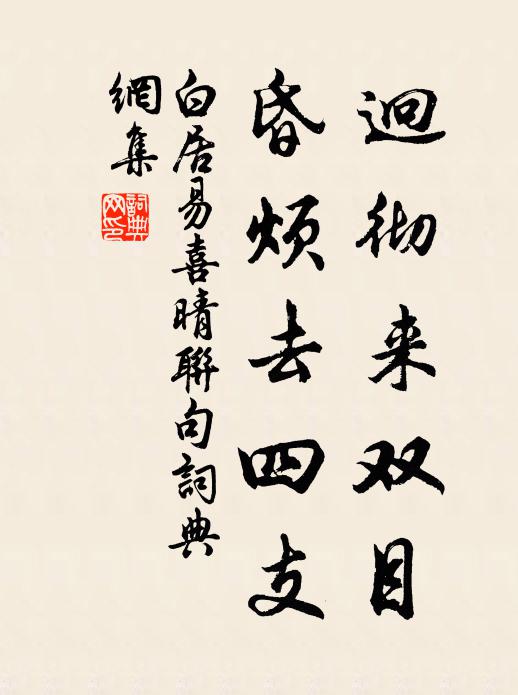 迥彻来双目
昏烦去四支
白居易喜晴聯句詞典
網集
詞典
网印